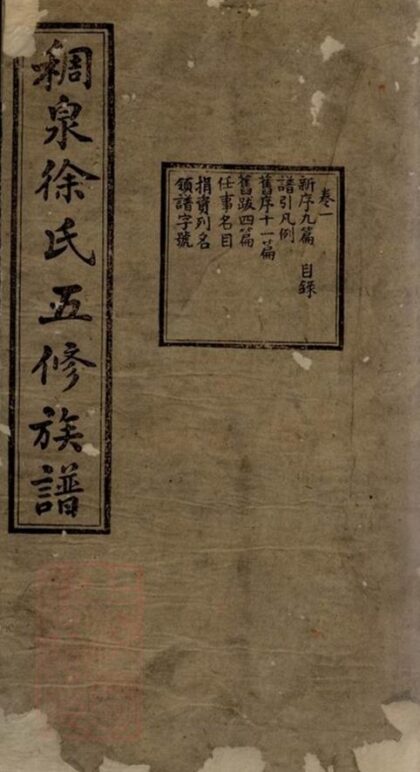 稠泉徐氏五修族譜
卷一
新序九篇 目錄
譜引凡例
舊序十一篇
舊跋四篇
任事名目
捐資列名
領譜字號